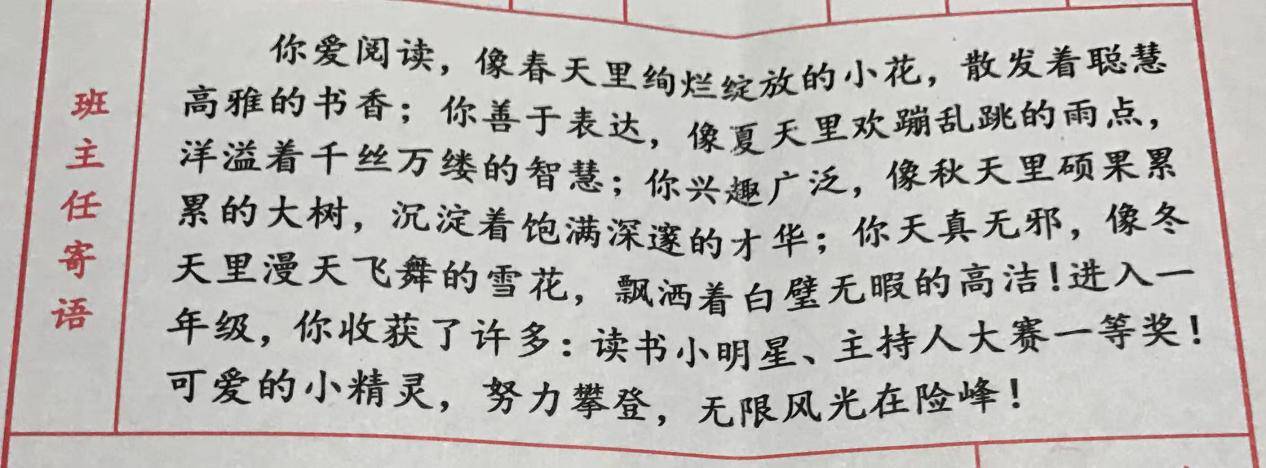 班主任寄语
你爱阅读，像春天里绚烂绽放的小花，散发着聪慧
高雅的书香；你善于表达，像夏天里欢蹦乱跳的雨点，
洋溢着千丝万缕的智慧；你兴趣广泛，像秋天里硕果累
累的大树，沉淀着饱满深邃的才华；你天真无邪，像冬
天里漫天飞舞的雪花，飘洒着白璧无暇的高洁！进入一
年级，你收获了许多：读书小明星、主持人大赛一等奖！
可爱的小精灵，努力攀登，无限风光在险峰！